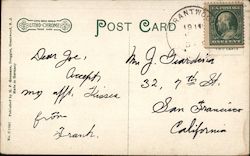 LITHO-CHROME
POST CARD
Dear Joe,
Accept
my afft. Kisses
from
Frank.
M. J. Giardina
32, 7th St.
San Francisco
California